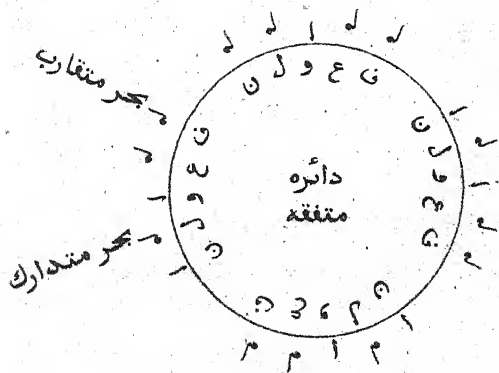 بحر متقارب
بحر متدارك
دائره
متفقه
ف ع و ل ن
ف ع و ل ن
ف ع و ل ن
ف ع و ل ن